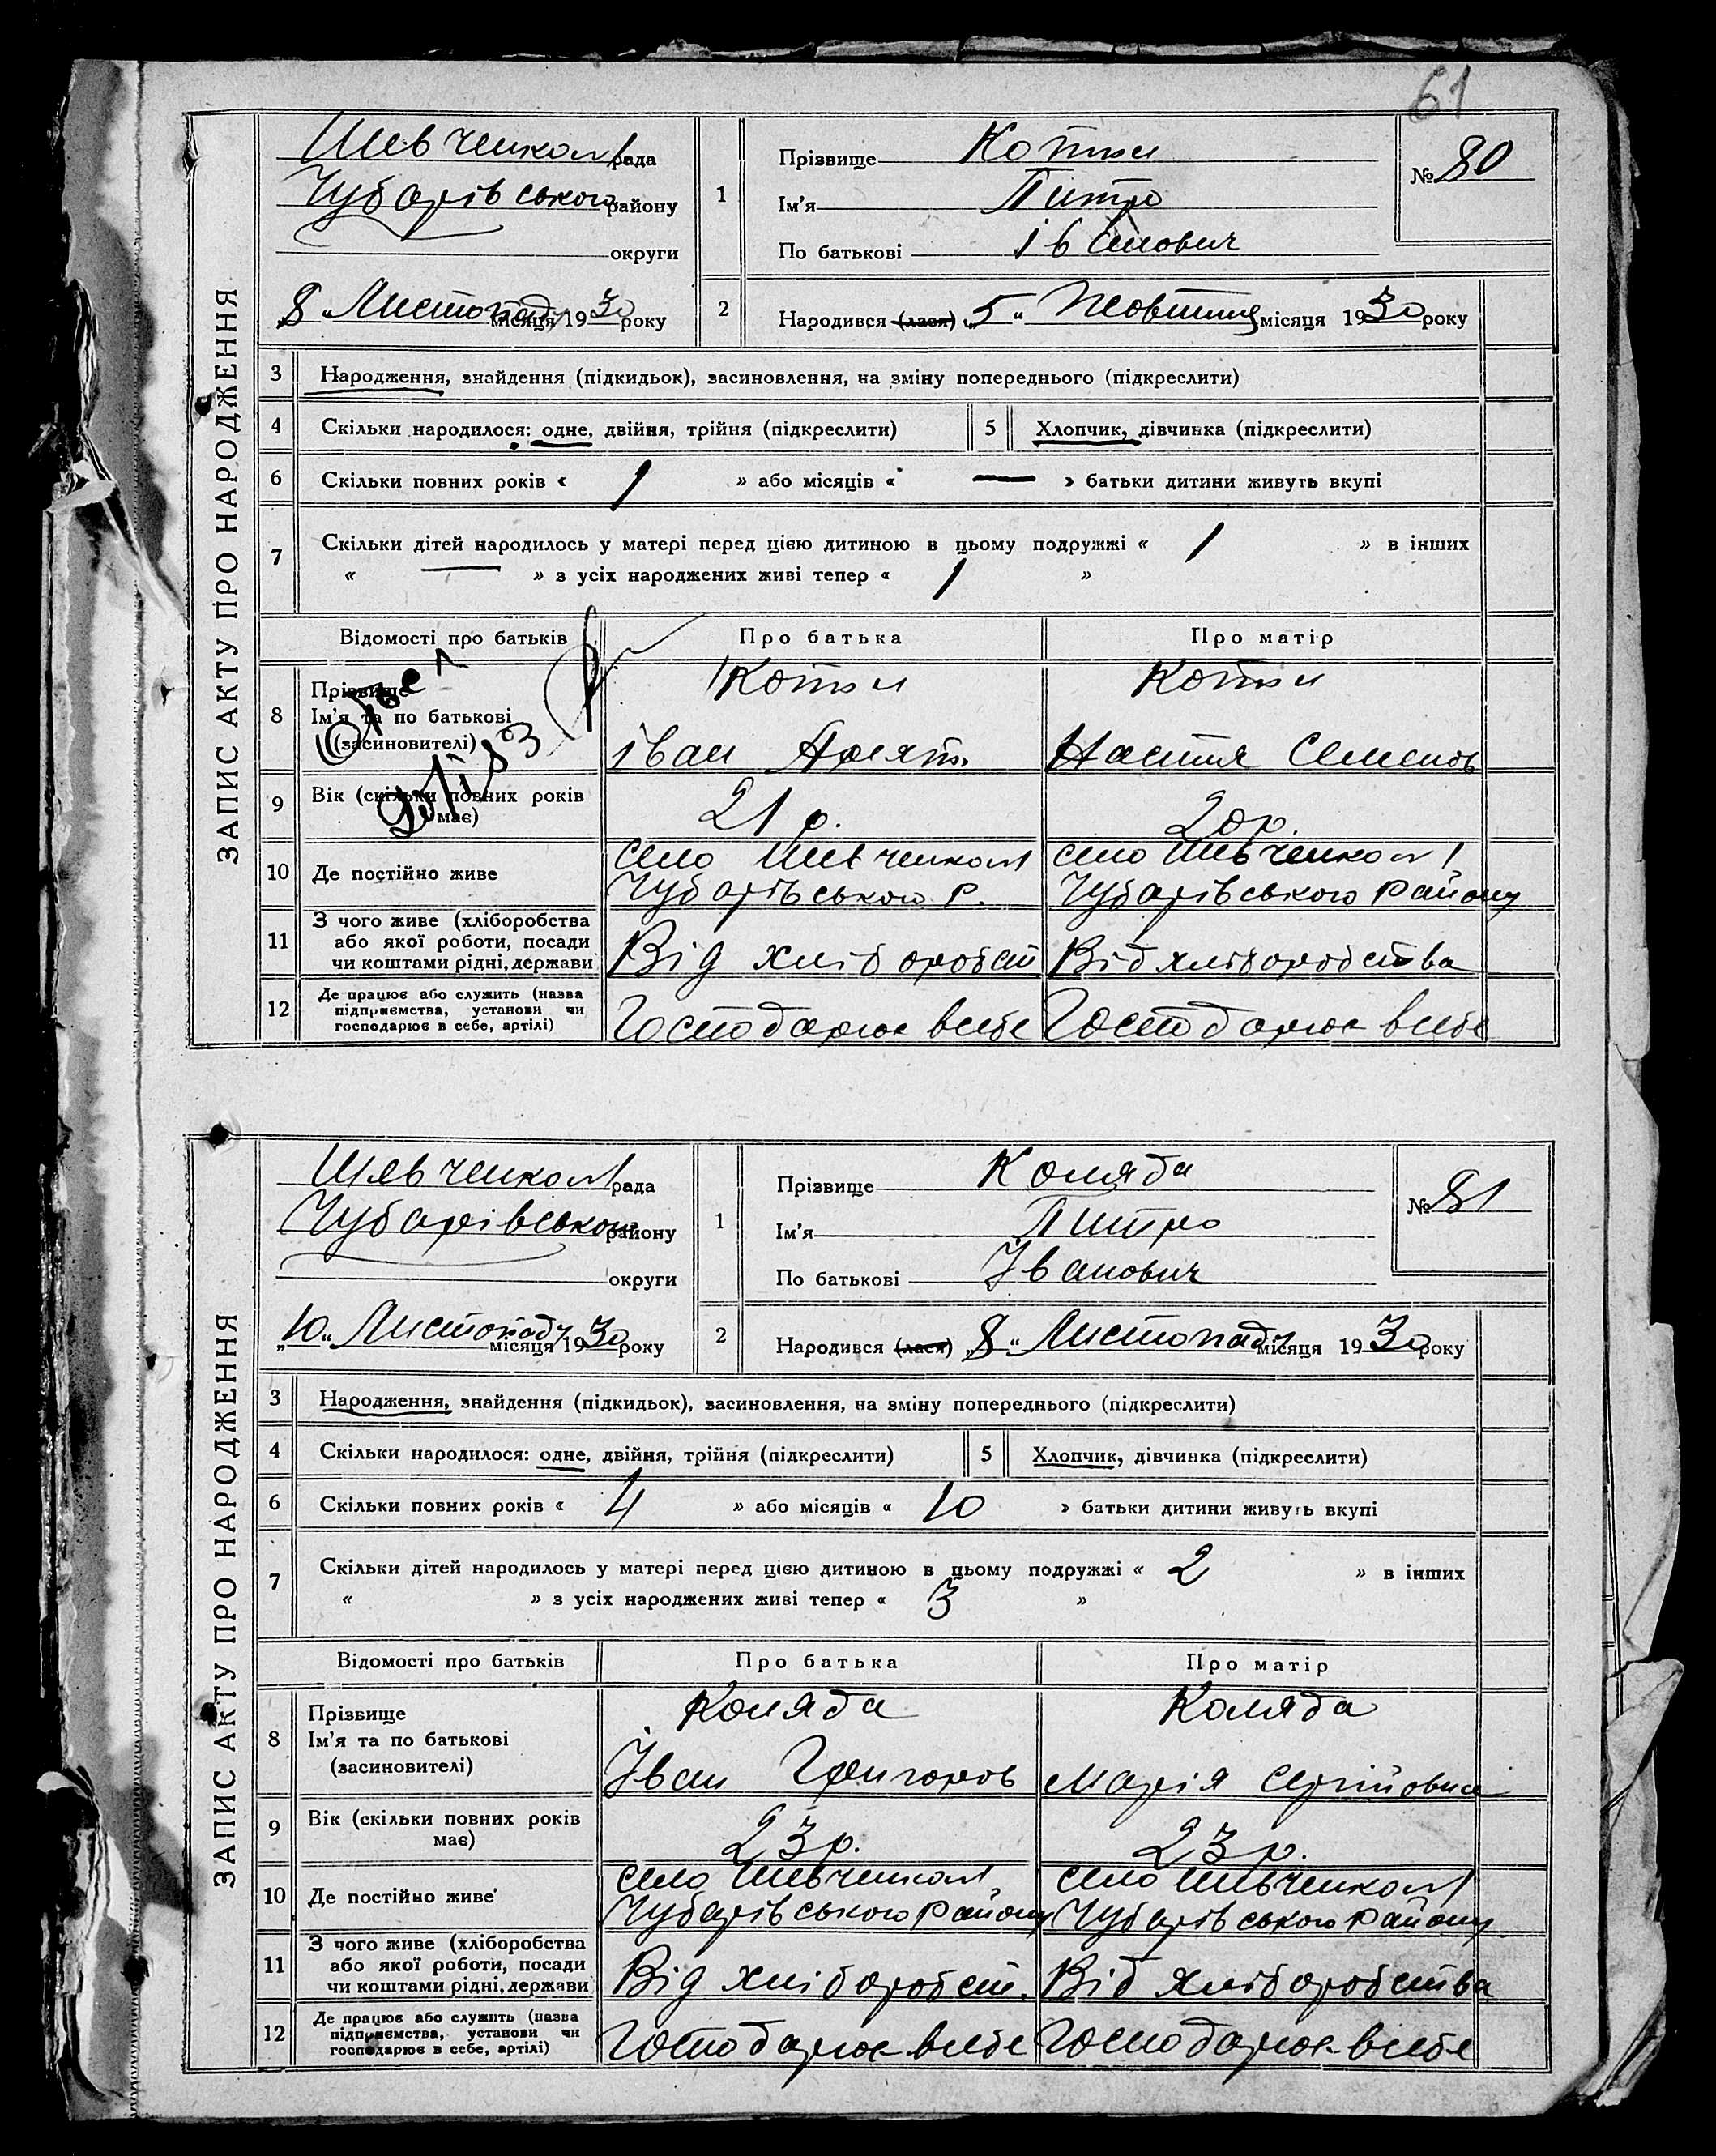 61
ЗАПИС АКТУ ПРО НАРОДЖЕННЯ
Шевченком рада
Чубарівського району
округи
„8“ Листопаду місяця 1930 року
1
Прізвище
Ім'я Питро
По батькові Іванович
№ 80
2 Народився (лася) „5“ Жовтня місяця 1930 року
3 Народження, знайдення (підкидьок), засиновлення, на зміну попереднього (підкреслити)
4 Скільки народилося: одне, двійня, трійня (підкреслити) 5 Хлопчик, дівчинка (підкреслити)
6 Скільки повних років « 1 » або місяців « — » батьки дитини живуть вкупі
7 Скільки дітей народилось у матері перед цією дитиною в цьому подружжі « 1 » в інших
« — » з усіх народжених живі тепер « 1 »
Відомості про батьків Про батька Про матір
8 Прізвище
Ім'я та по батькові
(засиновителі) Іван Настя Семенов
9 Вік (скільки повних років має) 21 р. 20 р.
10 Де постійно живе село Шевченком село Шевченком
Чубарівського р. Чубарівського району
11 З чого живе (хліборобства
або якої роботи, посади
чи коштами рідні, держави Від хліборобст Від хліборобства
12 Де працює або служить (назва
підприємства, установи чи
господарює в себе, артілі) Господарює в себе Господарює в себе
ЗАПИС АКТУ ПРО НАРОДЖЕННЯ
Шевченком рада
Чубарівського району
округи
„10“ Листопаду місяця 1930 року
1
Прізвище Коляда
Ім'я Питро
По батькові Іванович
№ 81
2 Народився (лася) „8“ Листопаду місяця 1930 року
3 Народження, знайдення (підкидьок), засиновлення, на зміну попереднього (підкреслити)
4 Скільки народилося: одне, двійня, трійня (підкреслити) 5 Хлопчик, дівчинка (підкреслити)
6 Скільки повних років « 4 » або місяців « 10 » батьки дитини живуть вкупі
7 Скільки дітей народилось у матері перед цією дитиною в цьому подружжі « 2 » в інших
« » з усіх народжених живі тепер « 3 »
Відомості про батьків Про батька Про матір
8 Прізвище Коляда Коляда
Ім'я та по батькові
(засиновителі) Іван Григоров Марія Сергійовна
9 Вік (скільки повних років має) 23 р. 23 р.
10 Де постійно живе село Шевченком село Шевченком
Чубарівського району Чубарівського району
11 З чого живе (хліборобства
або якої роботи, посади
чи коштами рідні, держави Від хліборобст. Від хліборобства
12 Де працює або служить (назва
підприємства, установи чи
господарює в себе, артілі) Господарює в себе Господарює в себе